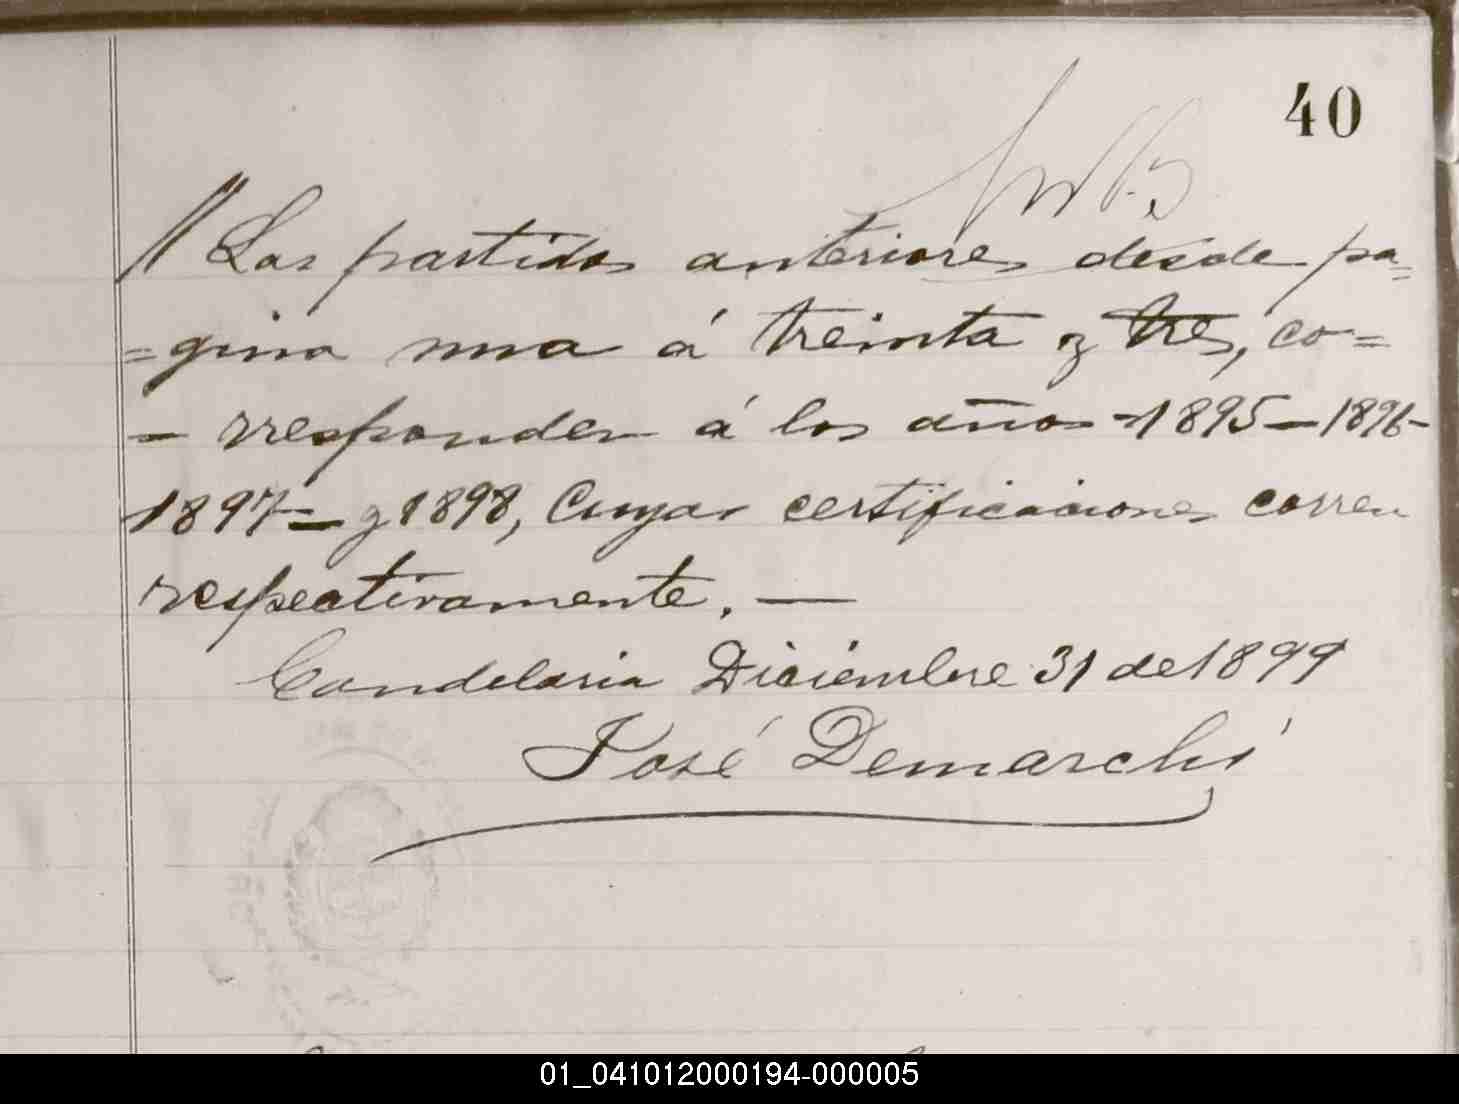 40
// Las partidas anteriores desde pa=
=gina una á treinta y tres, co=
- rresponden á los años -1895-1896-
1897- y 1898, Cuyas certificaciones corren
respectivamente. —
Candelaria Diciembre 31 de 1899
José Demarchi
01_041012000194-000005